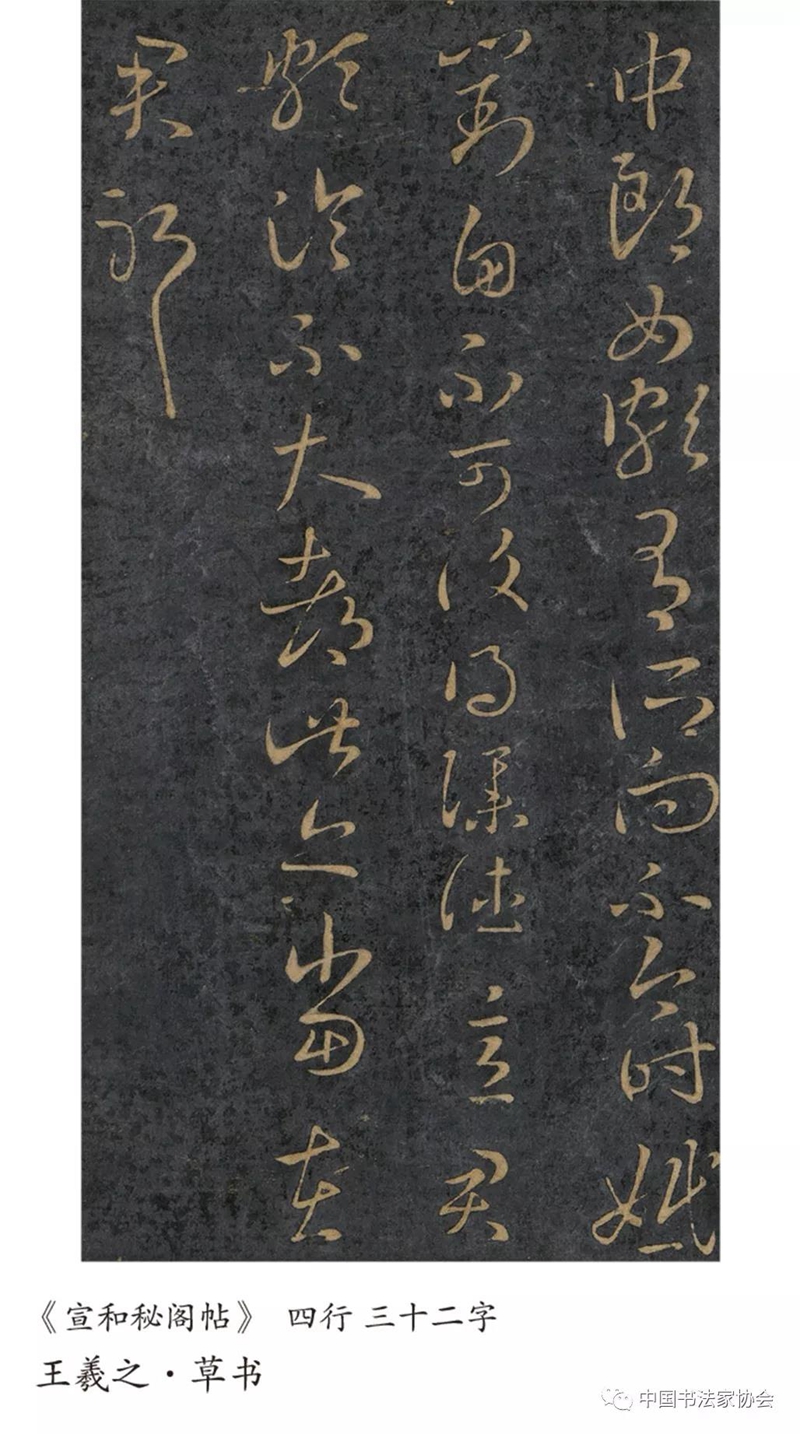 中郎女颇有所向不今时婚
对自不可复得仆往意君
颇论不大都此亦当在
君耶
《宣和秘阁帖》 四行 三十二字
王羲之·草书
中国书法家协会